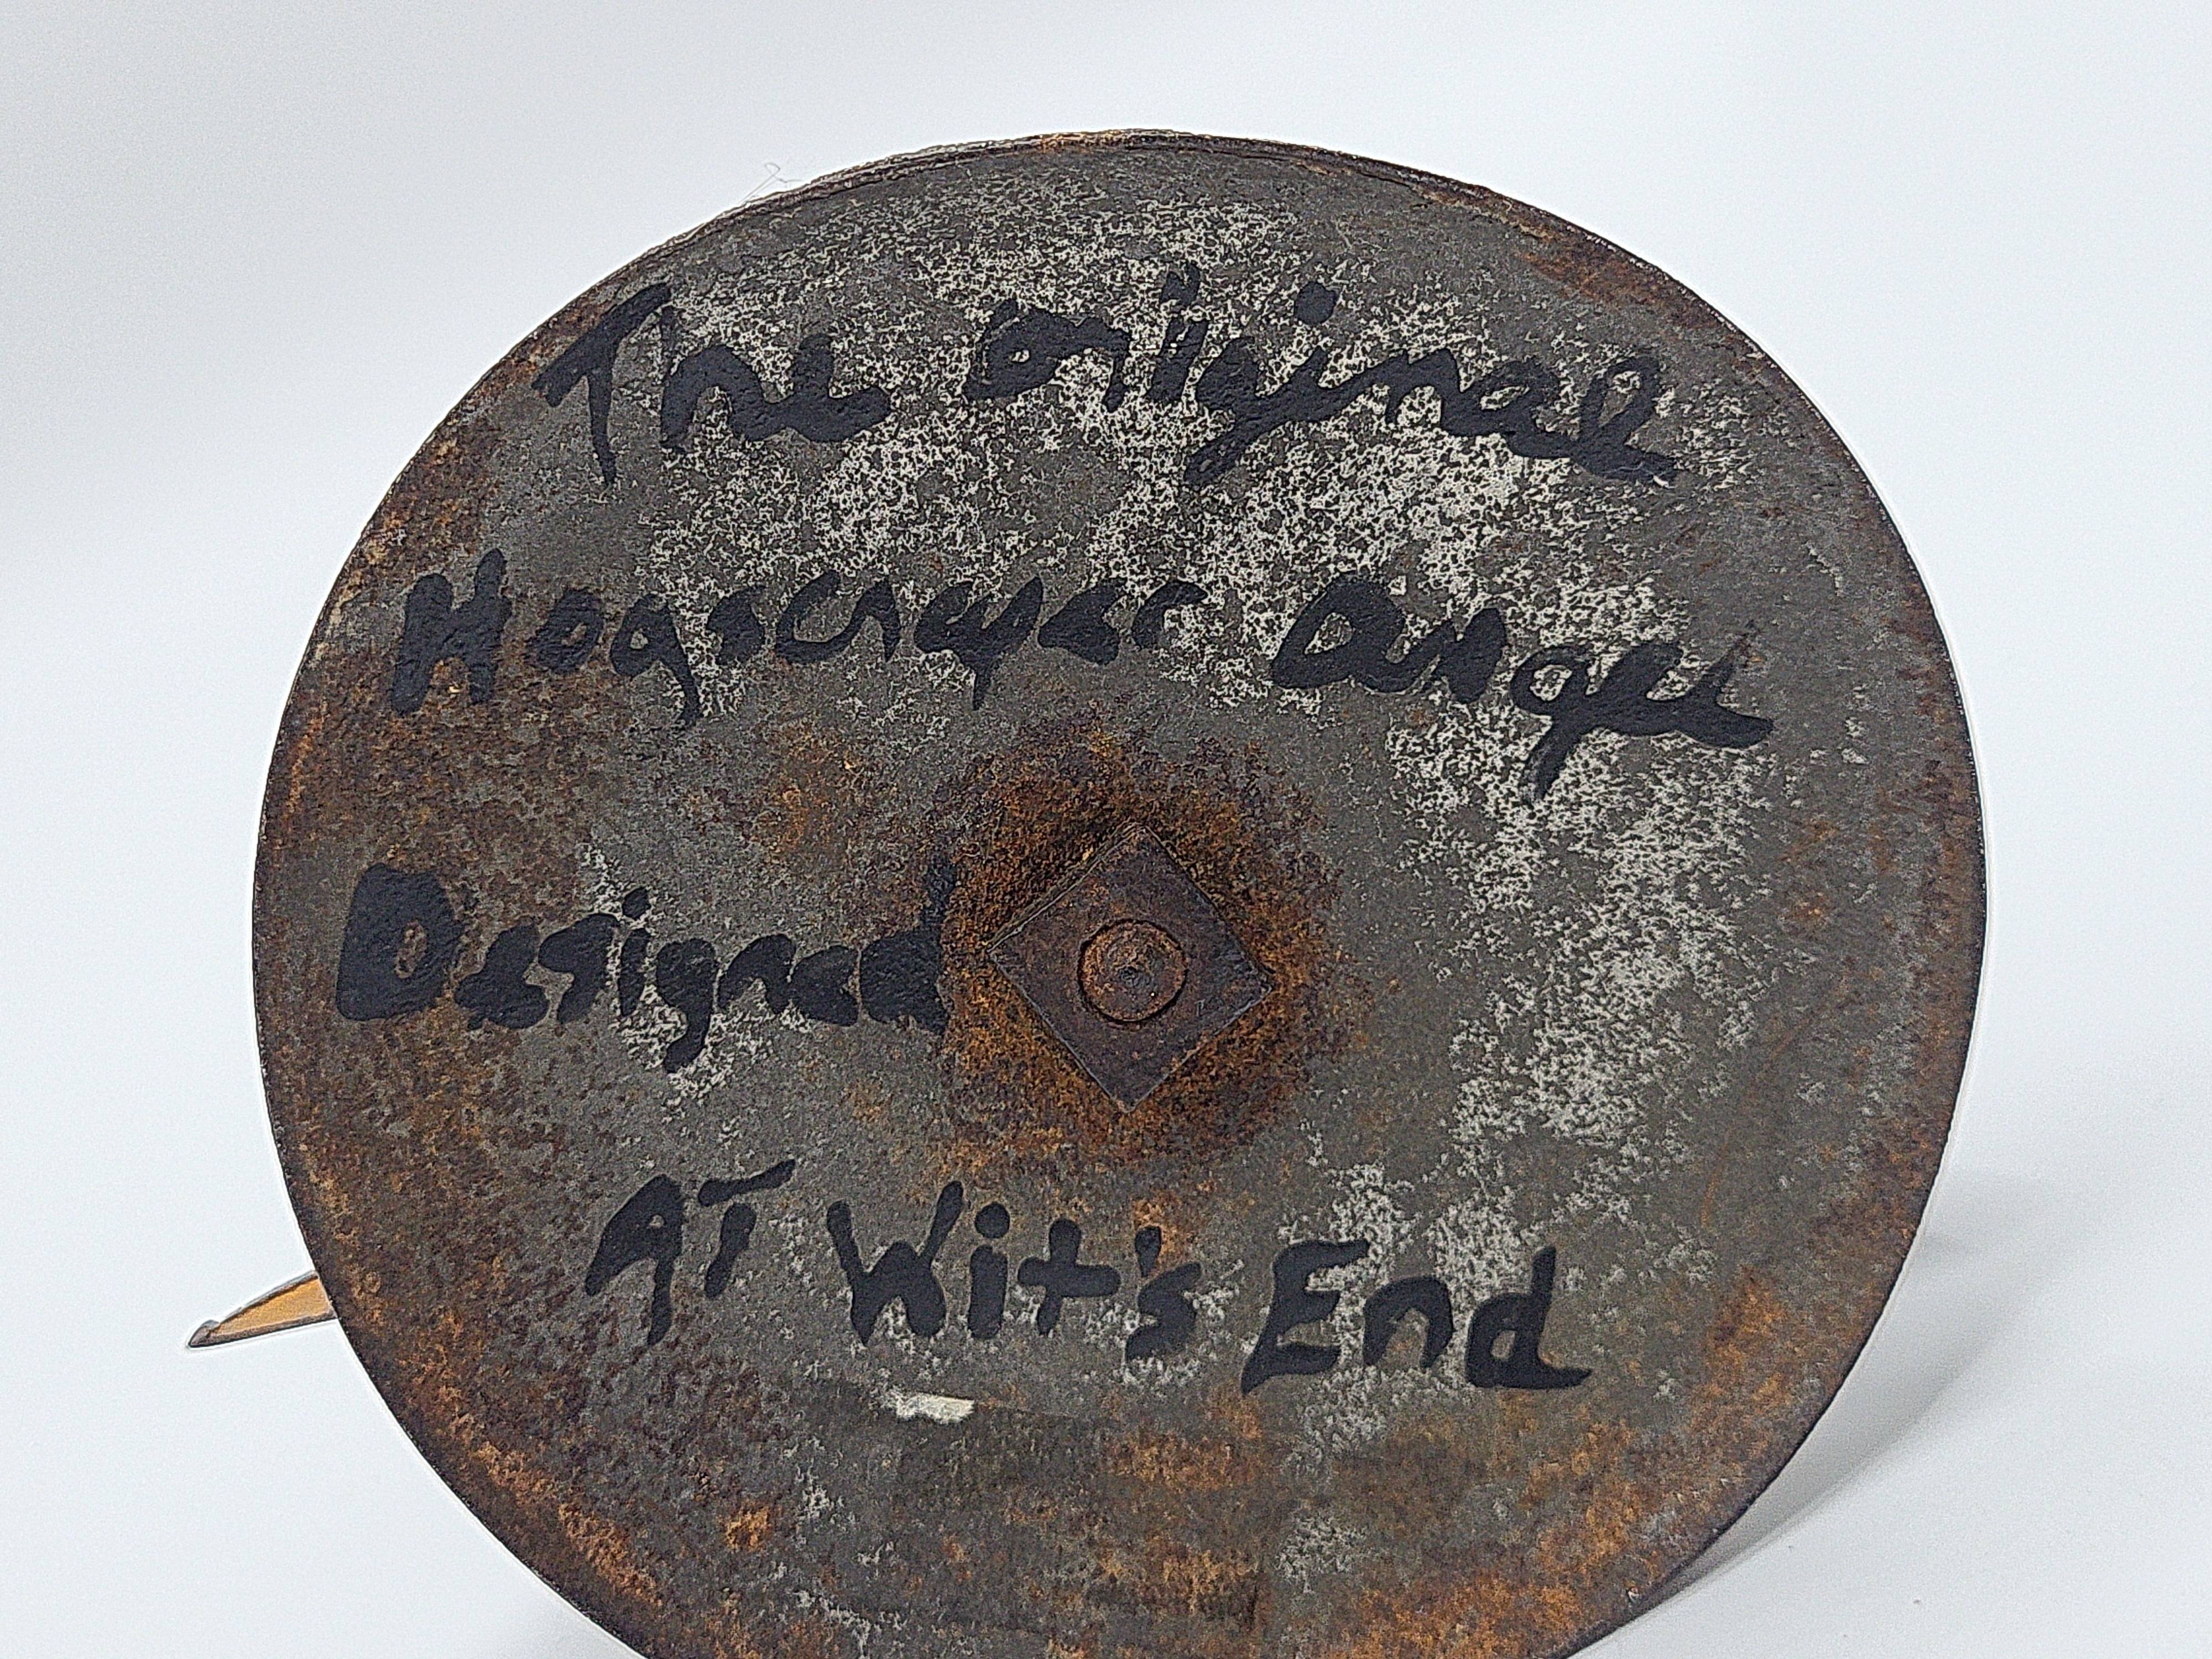 The original
Hogscraper Angel
Designed
AT Wit's End